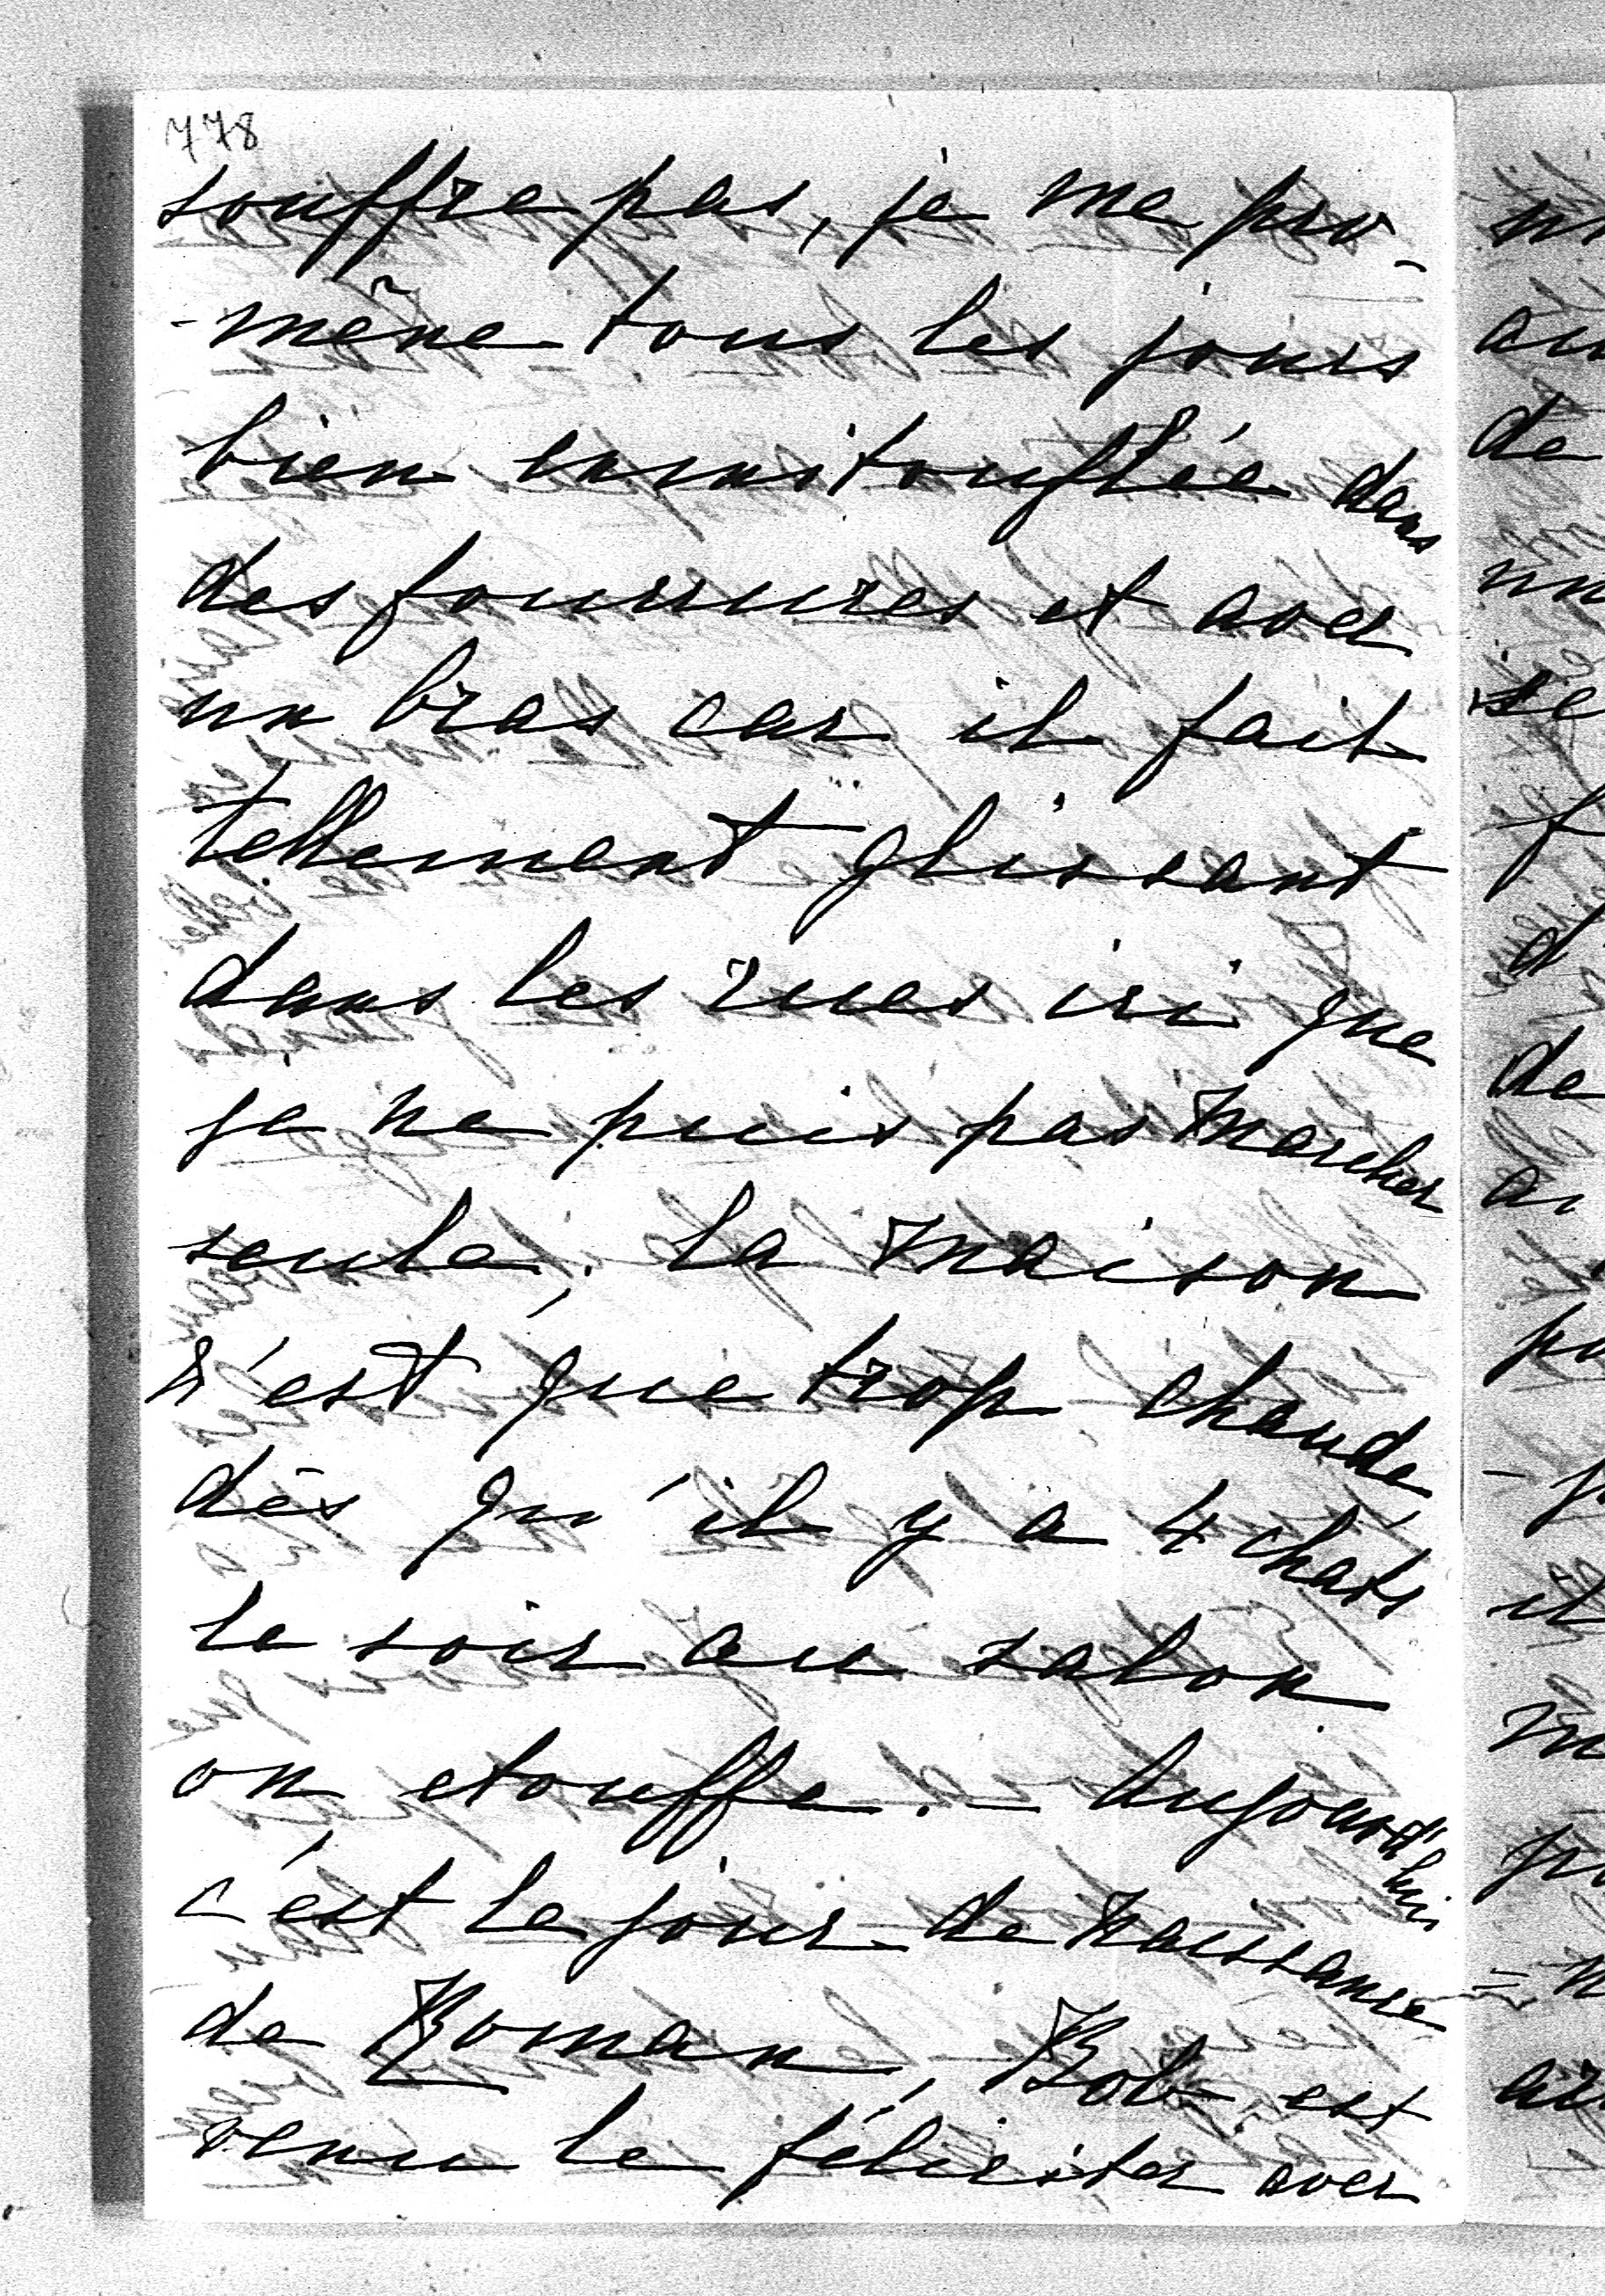 778
souffre pas, je me pro-
-mène tous les jours
bien emmitouflée dans
des fourrures et avec
un bras car il fait
tellement glissant
dans les rues ici que
je ne puis pas marcher
seule. La maison
n'est que trop chaude,
dès qu'il y a 4 chats
le soir au salon
on etouffe. – Aujourd'hui
c'est le jour de naissance
de Roman, Bob est
venu le féliciter avec